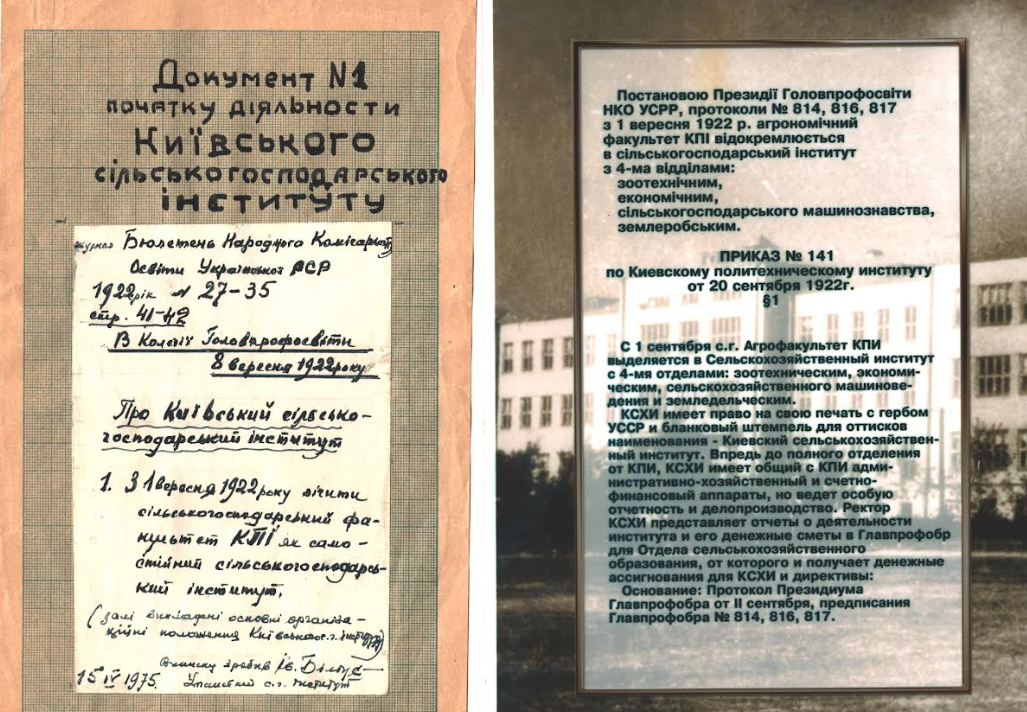 Документ N1
початку діяльности
Київського
сільськогосподарського
інституту
журнал Бюлетень Народного Комісаріату
Освіти Української РСР
1922 рік N 27-35
стр. 41-42
В Колегії Головпрофосвіти
8 вересня 1922 року
Про Київський сільсько-
господарський інститут
1. З 1 вересня 1922 року лічити
сільськогосподарський фа-
культет КПІ як само-
стійний сільськогосподарсь-
кий інститут.
(далі викладені основні організа-
ційні положення Київського с.г. інституту)
Виписку зробив
15 IV 1975. Уманський с.г. інститут
Постановою Президії Головпрофосвіти
НКО УСРР, протоколи № 814, 816, 817
з 1 вересня 1922 р. агрономічний
факультет КПІ відокремлюється
в сільськогосподарський інститут
з 4-ма відділами:
зоотехнічним,
економічним,
сільськогосподарського машинознавства,
землеробським.
ПРИКАЗ № 141
по Киевскому политехническому институту
от 20 сентября 1922г.
§1
С 1 сентября с.г. Агрофакультет КПИ
выделяется в Сельскохозяйственный институт
с 4-мя отделами: зоотехническим, экономи-
ческим, сельскохозяйственного машинове-
дения и земледельческим.
КСХИ имеет право на свою печать с гербом
УССР и бланковый штемпель для оттисков
наименования - Киевский сельськохозяйствен-
ный институт. Впредь до полного отделения
от КПИ, КСХИ имеет общий с КПИ адми-
нистративно-хозяйственный и счетно-
финансовый аппараты, но ведет особую
отчетность и делопроизводство. Ректор
КСХИ представляет отчеты о деятельности
института и его денежные сметы в Главпрофобр
для Отдела сельскохозяйственного
образования, от которого и получает денежные
ассигнования для КСХИ и директивы:
Основание: Протокол Президиума
Главпрофобра от II сентября, предписания
Главпрофобра № 814, 816, 817.